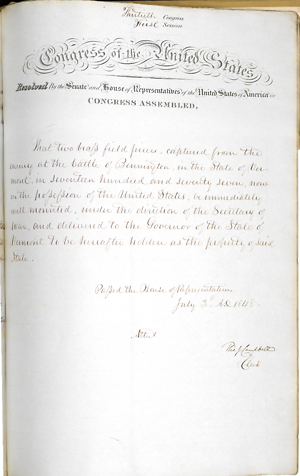 Thirtieth Congress
First Session
Congress of the United States
Resolved By the Senate and House of Representatives of the United States of America in
CONGRESS ASSEMBLED,
That two brass field pieces, captured from the
enemy at the battle of Bennington, in the State of Ver-
mont, in seventeen hundred and seventy seven, now
in the possession of the United States, be immediately
well mounted, under the direction of the Secretary of
War, and delivered to the Governor of the State of
Vermont to be hereafter holden as the property of said
State.
Passed the House of Representatives
July 3d, A.D. 1848.
Attest
Tho J Campbell
Clerk